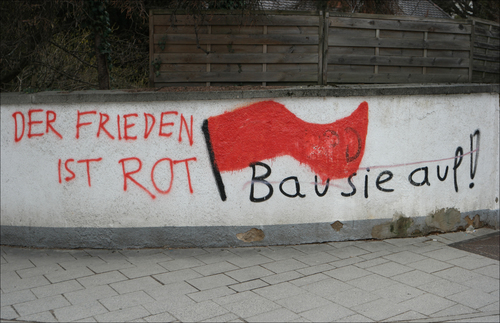 DER FRIEDEN
IST ROT
Bau sie auf!